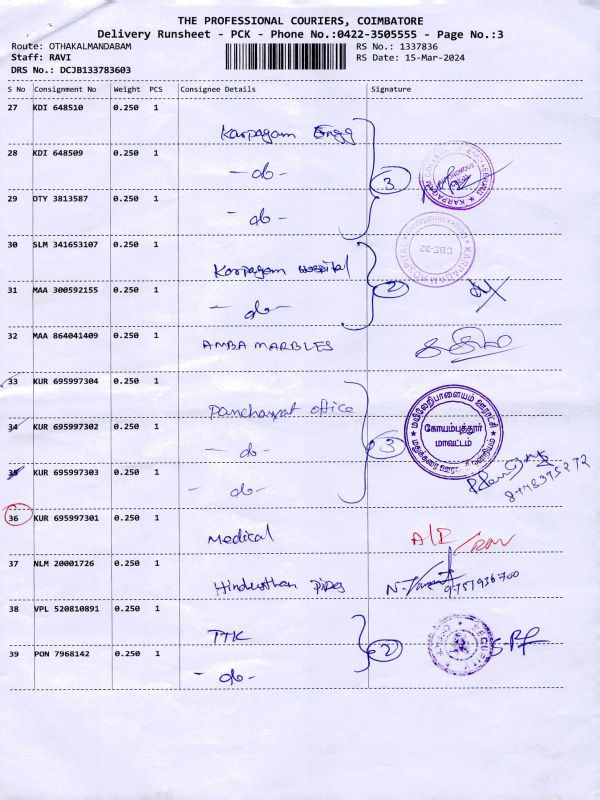 THE PROFESSIONAL COURIERS, COIMBATORE
Delivery Runsheet - PCK - Phone No.:0422-3505555 - Page No.:3
Route: OTHAKALMANDABAM
RS No.: 1337836
Staff: RAVI
RS Date: 15-Mar-2024
DRS No.: DCJB133783603
S No Consignment No Weight PCS Consignee Details Signature
27 KDI 648510 0.250 1
Karpagam Engg
28 KDI 648509 0.250 1
- do -
3
29 DTY 3813587 0.250 1
- do -
30 SLM 341653107 0.250 1
Karpagam Hospital
CBE-32
31 MAA 300592155 0.250 1
- do -
2
32 MAA 864041409 0.250 1
AMBA MARBLES
33 KUR 695997304 0.250 1
Panchayat office
34 KUR 695997302 0.250 1
- do -
3
கோயம்புத்தூர்
மாவட்டம்
35 KUR 695997303 0.250 1
- do -
36 KUR 695997301 0.250 1
Medical
37 NLM 20001726 0.250 1
Hindusthan pipes
9751936700
38 VPL 520810891 0.250 1
TTK
2
39 PON 7968142 0.250 1
- do -